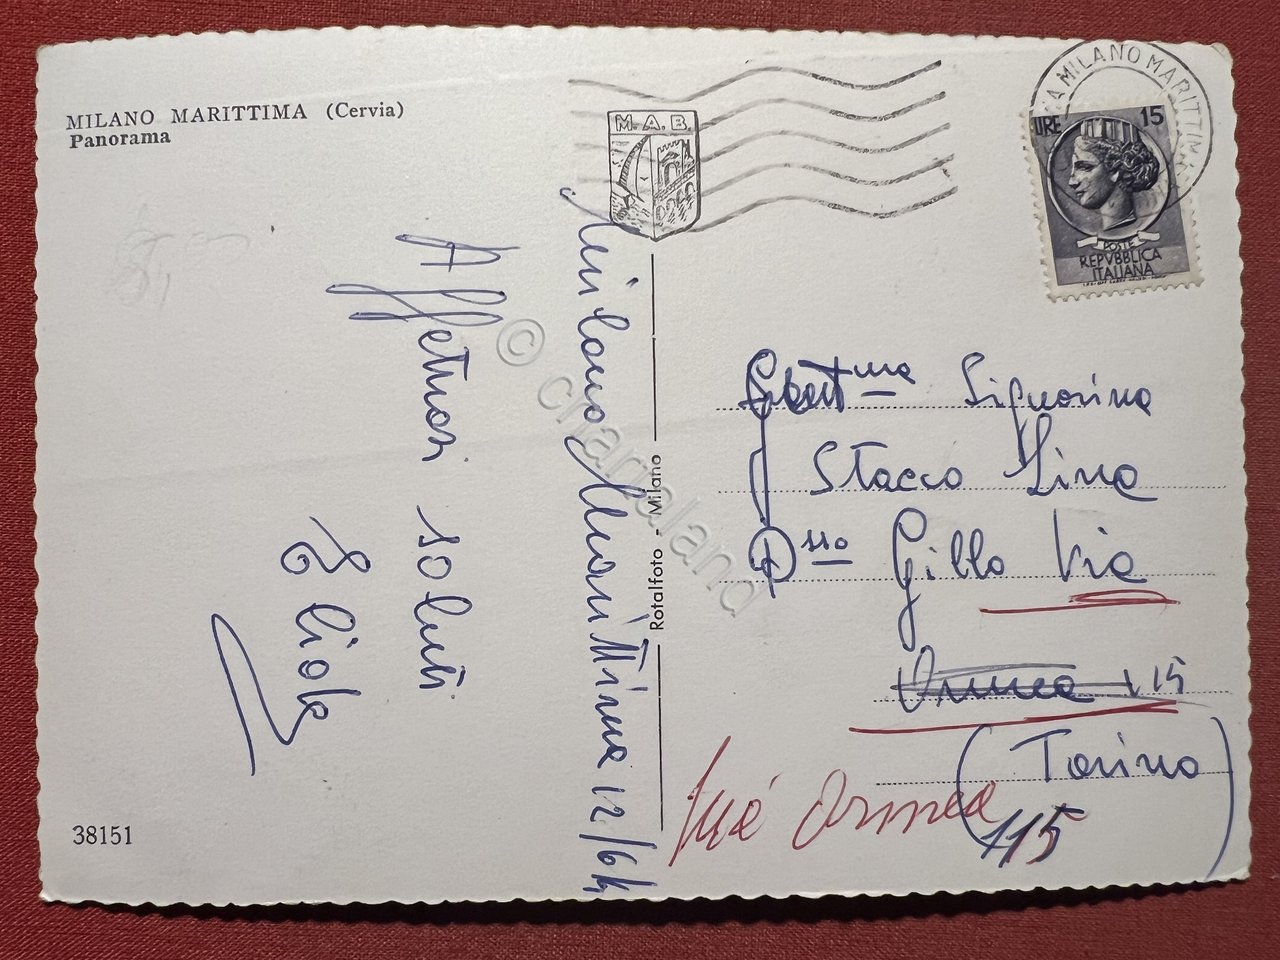 MILANO MARITTIMA (Cervia)
Panorama
M. A. B.
MILANO MARITTIMA
LIRE 15
POSTE
REPVBBLICA
ITALIANA
Affettuosi saluti
Milano Marittima 12/64
Rotalfoto - Milano
Gent ma Signorina
Stacco Lina
Gillo Via
Ormea 115
(Torino)
Ormea
115
38151
© chamaland